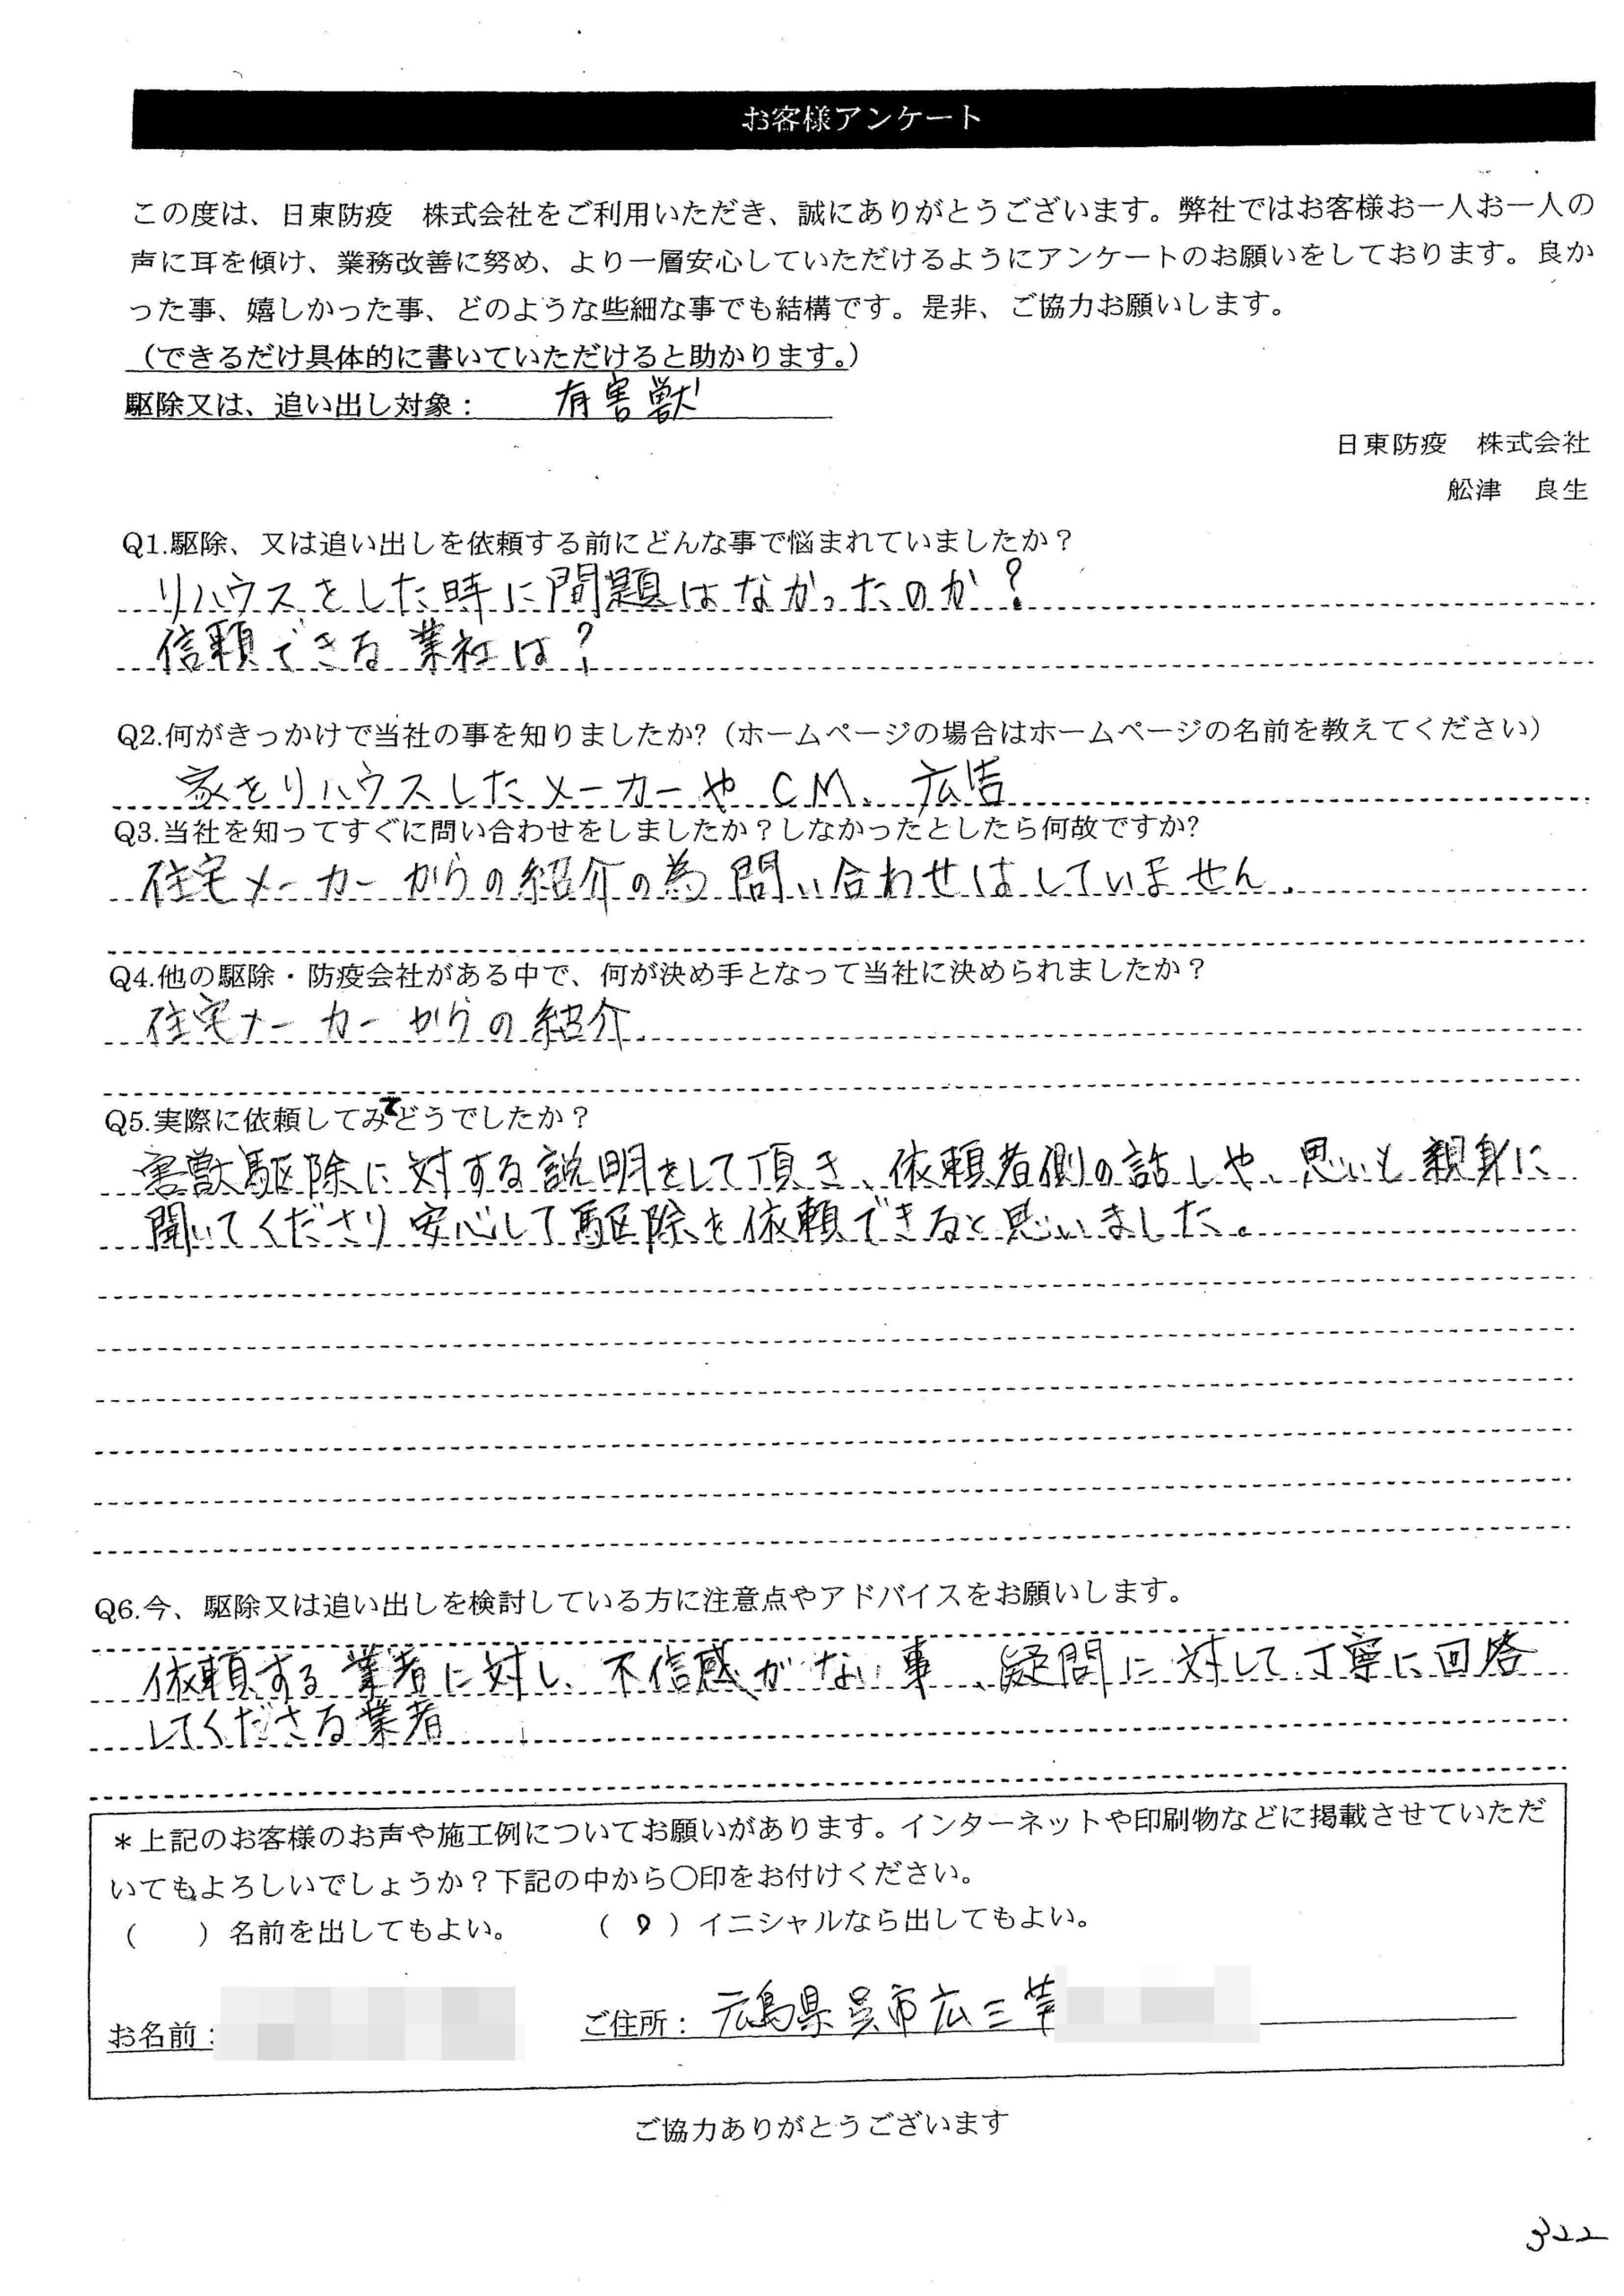 お客様アンケート
この度は、日東防疫　株式会社をご利用いただき、誠にありがとうございます。弊社ではお客様お一人お一人の
声に耳を傾け、業務改善に努め、より一層安心していただけるようにアンケートのお願いをしております。良か
った事、嬉しかった事、どのような些細な事でも結構です。是非、ご協力お願いします。
（できるだけ具体的に書いていただけると助かります。）
駆除又は、追い出し対象：　有害獣
日東防疫　株式会社
舩津　良生
Q1.駆除、又は追い出しを依頼する前にどんな事で悩まれていましたか？
リハウスをした時に問題はなかったのか？
信頼できる業社は？
Q2.何がきっかけで当社の事を知りましたか?（ホームページの場合はホームページの名前を教えてください）
家をリハウスしたメーカーや CM、広告
Q3.当社を知ってすぐに問い合わせをしましたか？しなかったとしたら何故ですか?
住宅メーカーからの紹介の為問い合わせはしていません.
Q4.他の駆除・防疫会社がある中で、何が決め手となって当社に決められましたか？
住宅メーカーからの紹介.
Q5.実際に依頼してみてどうでしたか？
害獣駆除に対する説明をして頂き、依頼者側の話しや、思いも親身に
聞いてくださり安心して駆除を依頼できると思いました。
Q6.今、駆除又は追い出しを検討している方に注意点やアドバイスをお願いします。
依頼する業者に対し、不信感がない事、疑問に対して丁寧に回答
してくださる業者
＊上記のお客様のお声や施工例についてお願いがあります。インターネットや印刷物などに掲載させていただ
いてもよろしいでしょうか？下記の中から〇印をお付けください。
（　　）名前を出してもよい。　　（ 〇 ）イニシャルなら出してもよい。
お名前：　ご住所：広島県呉市広三芦
ご協力ありがとうございます
322